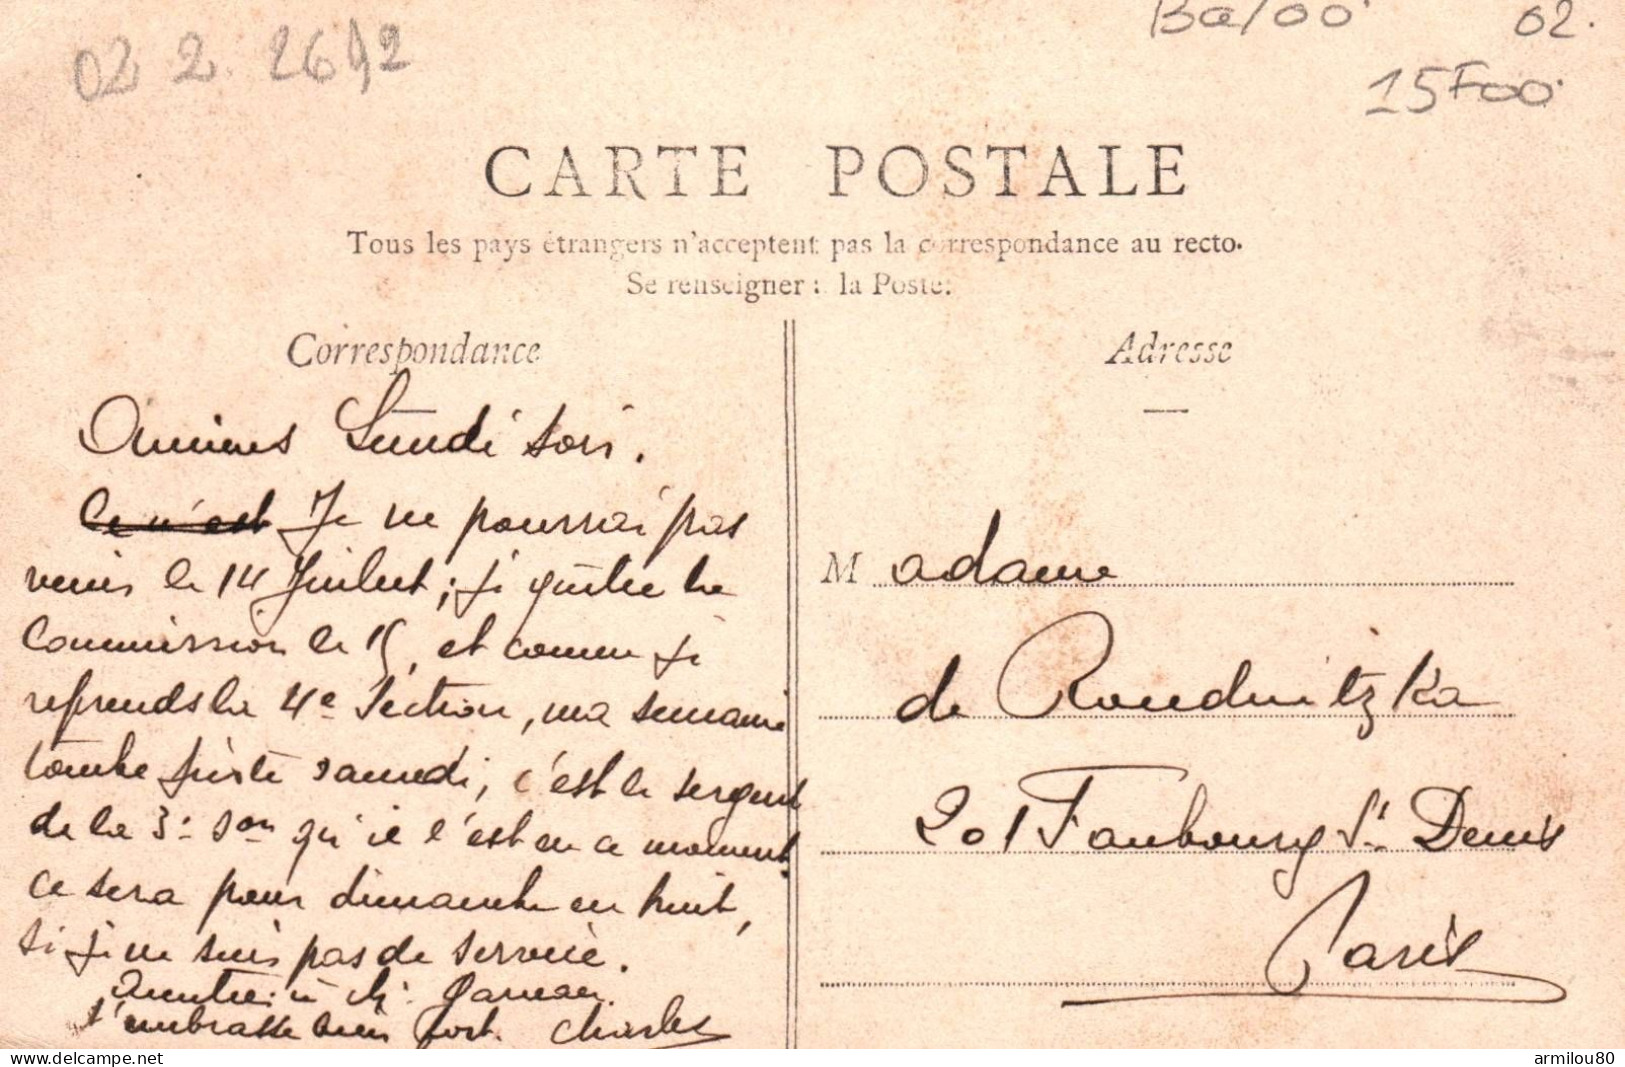 02 2. 2642
02.
15F00
CARTE POSTALE
Tous les pays étrangers n'acceptent pas la correspondance au recto.
Se renseigner : la Poste.
Correspondance
Amiens Lundi soir.
Ce n'est Je ne pourrai pas
venir le 14 Juillet, je quitte la
Commission le 15, et comme je
reprends la 4e Section, ma semaine
tombe juste samedi, c'est le sergent
de la 3e Son qui l'est en ce moment
ce sera pour dimanche en huit,
si je ne suis pas de service.
t'embrasse bien fort. Charles
Adresse
Madame
de Roudnitzka
201 Faubourg St Denis
Paris
www.delcampe.net
armilou80